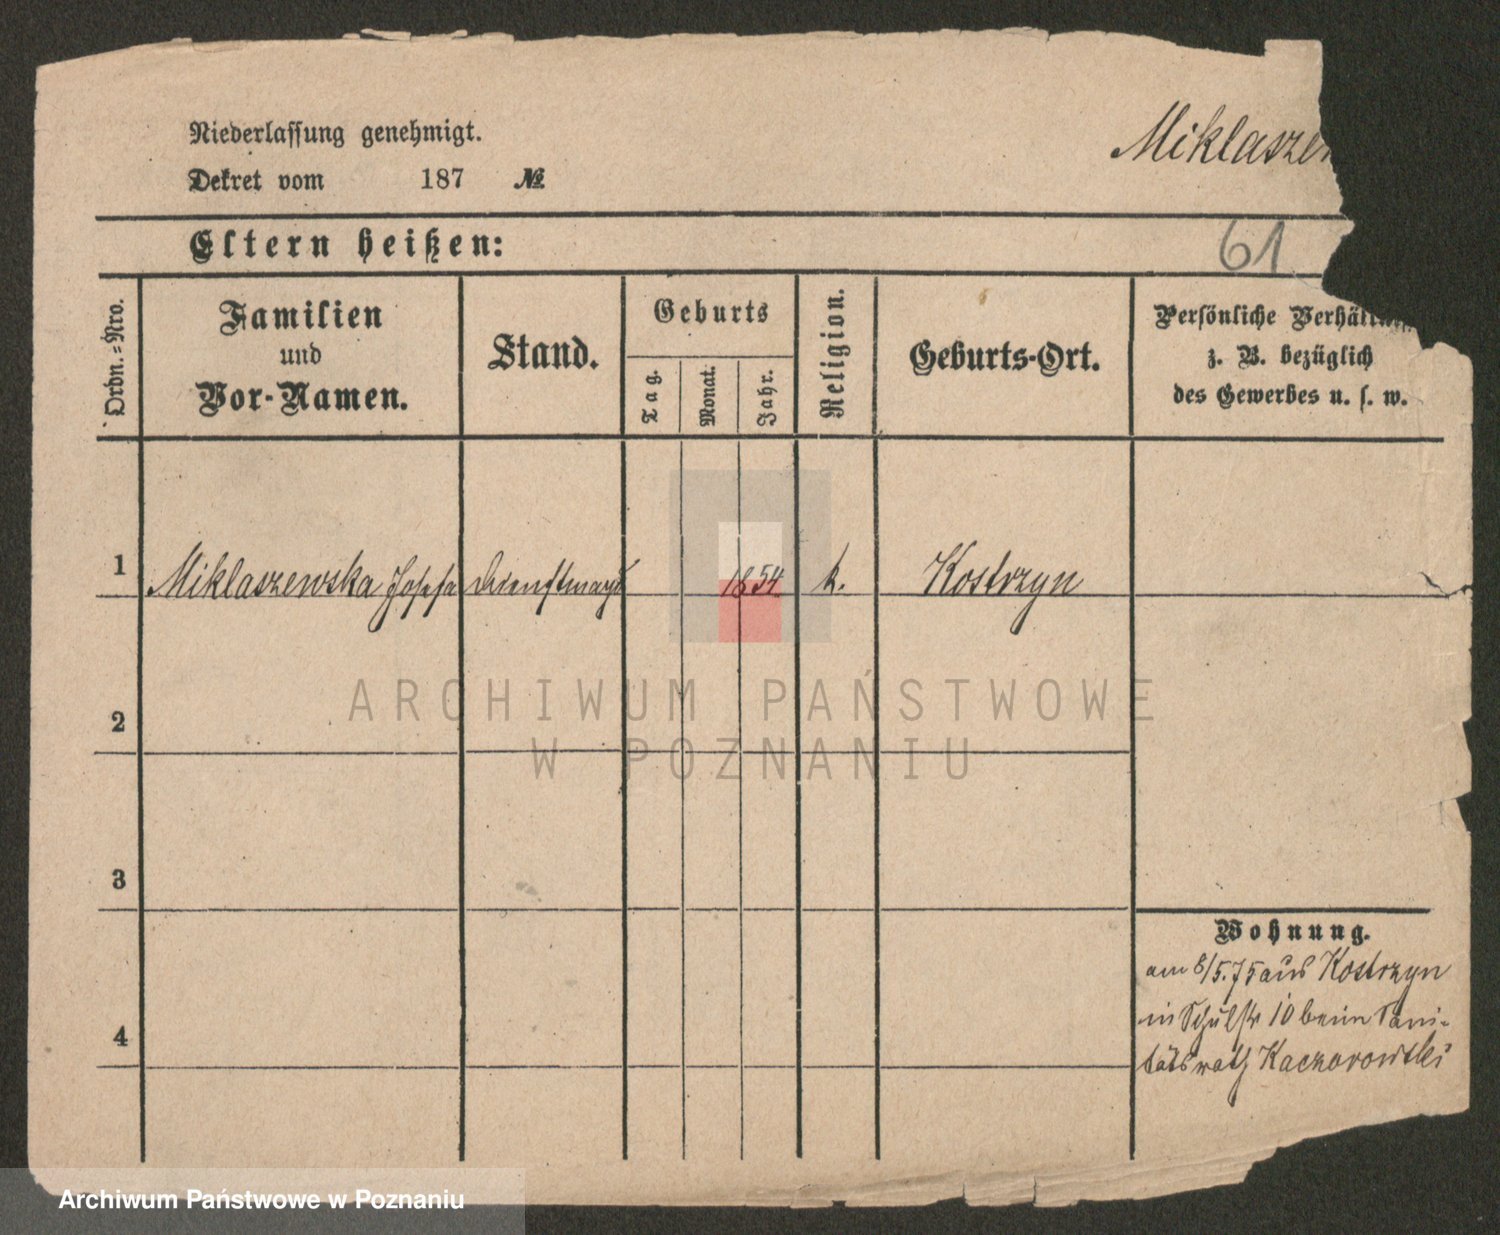 Niederlassung genehmigt.
Miklaszew
Dekret vom 187 №
Eltern heißen:
61
Ordn.-Nro.
Familien
und
Vor-Namen.
Stand.
Geburts
Tag.
Monat.
Jahr.
Religion.
Geburts-Ort.
Persönliche Verhältn
z. B. bezüglich
des Gewerbes u. s. w.
1 Miklaszewska Josefa Dienstmagd 1854 k. Kostrzyn
ARCHIWUM PAŃSTWOWE
W POZNANIU
2
3
4
Wohnung.
am 8/5.75 aus Kostrzyn
in Schulstr 10 beim Sani-
tätsrath Kaczorowski
Archiwum Państwowe w Poznaniu